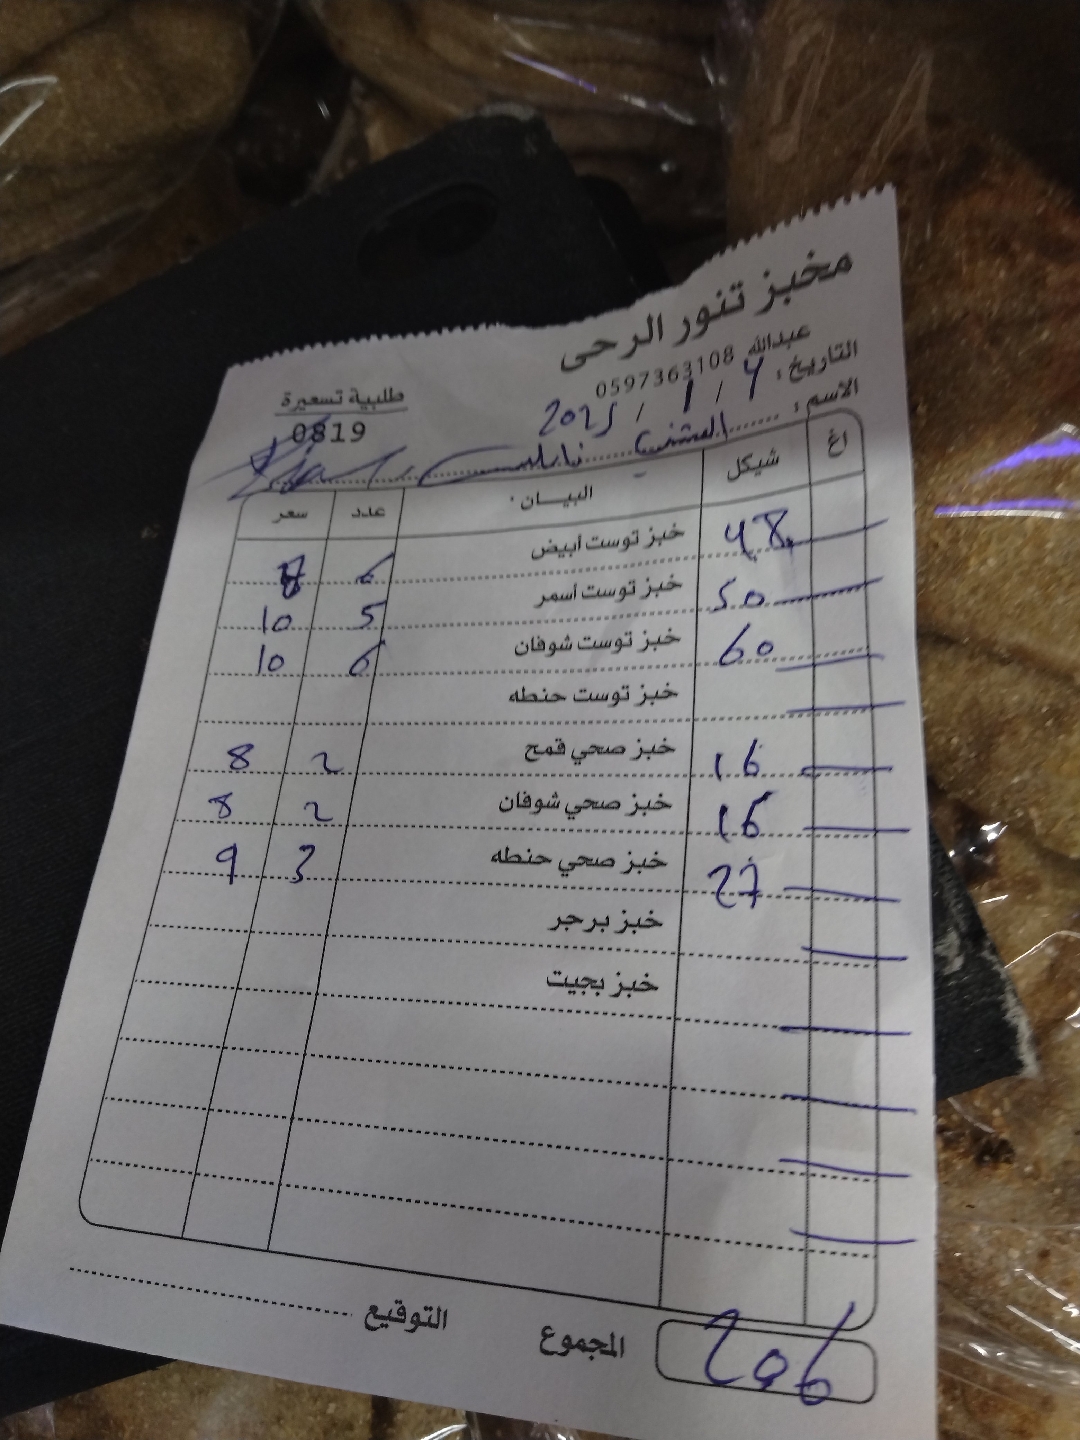 مخبز تنور الرحى
عبدالله 0597363108
طلبية تسعيرة
0819
التاريخ : 4 / 1 / 2025
الاسم : نابلس
اغ شيكل البيان عدد سعر
48 خبز توست أبيض 6 8
50 خبز توست أسمر 5 10
60 خبز توست شوفان 6 10
خبز توست حنطه
16 خبز صحي قمح 2 8
16 خبز صحي شوفان 2 8
27 خبز صحي حنطه 3 9
خبز برجر
خبز بجيت
المجموع 206
التوقيع